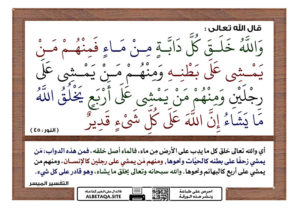 قال الله تعالى :
وَاللَّهُ خَلَقَ كُلَّ دَابَّةٍ مِنْ مَاءٍ فَمِنْهُمْ مَنْ
يَمْشِي عَلَى بَطْنِهِ وَمِنْهُمْ مَنْ يَمْشِي عَلَى
رِجْلَيْنِ وَمِنْهُمْ مَنْ يَمْشِي عَلَى أَرْبَعٍ يَخْلُقُ اللَّهُ
مَا يَشَاءُ إِنَّ اللَّهَ عَلَى كُلِّ شَيْءٍ قَدِيرٌ
( النور : ٤٥ )
أي والله تعالى خلق كل ما يدب على الأرض مِن ماء، فالماء أصل خلقه، فمن هذه الدواب: مَن
يمشي زحفًا على بطنه كالحيّات ونحوها، ومنهم مَن يمشي على رجلين كالإنسان، ومنهم من
يمشي على أربع كالبهائم ونحوها. والله سبحانه وتعالى يخلق ما يشاء، وهو قادر على كل شيء.
التفسير الميسر
احرص على طباعة
ونشر هذه الورقة
ALBETAQA.SITE